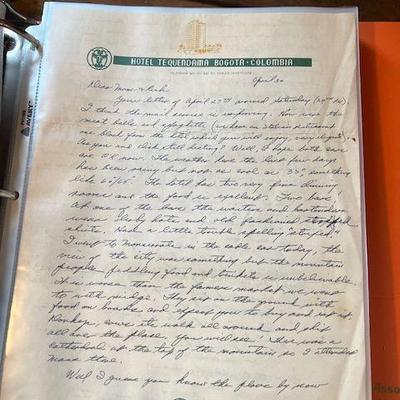 HOTEL TEQUENDAMA BOGOTA · COLOMBIA
April 30
Dear Mom &
Your letter of April 23rd arrived Saturday
I think the mail service is improving. You say the
meat balls and spaghetti (we have an Italian restaurant
one block from the hotel which you will enjoy, very elegant).
As you and Dick still dieting? Well, I hope both ears
are OK now. The weather here the last few days
has been rainy but not as cool as 55°, something
like 60/65°. The hotel has two very fine dining
rooms and the food is excellent. Two bars,
at one of the bars the waiters and bartenders
wear derby hats and old fashioned striped
shirts. Had a little trouble spelling "striped".
I went to Monserrate in the cable car today, the
view of the city was something but the mountain
people peddling food and trinkets is unbelievable.
It is worse than the farmers market we used
to with midge. They sit on the ground with
food on boards and expect you to buy and eat it
cows etc walk all around and
all over the place. You will see! There was a
cathedral at the top of the mountain so I attended
Mass there.
Well I guess you know the place by now
AVERY
Asso